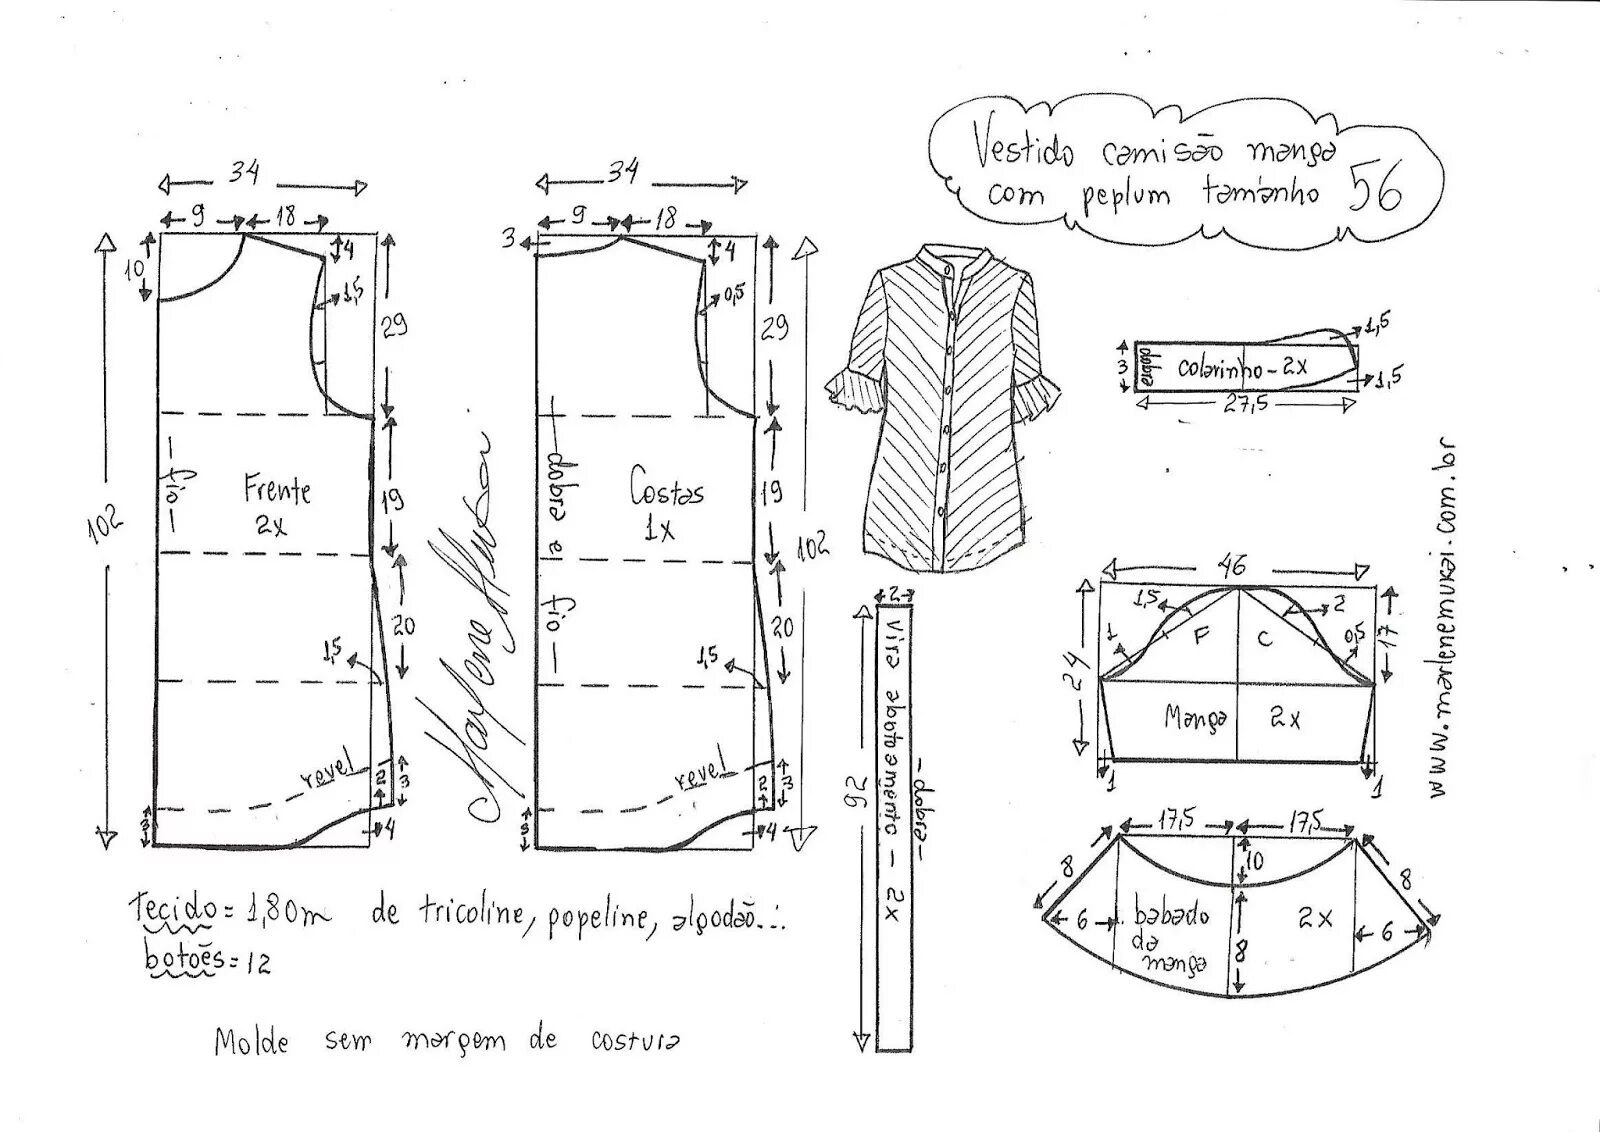 Vestido camisão manga
com peplum tamanho 56
34
9
18
10
4
1,5
29
102
fio
Frente
2x
19
20
1,5
revel
2
3
3
4
34
9
18
3
4
0,5
29
dobra e fio
Costas
1x
19
102
20
1,5
revel
2
3
3
4
Marlene Mukai
2
92
vira abotoamento - 2x
-dobra-
3
dobra
colarinho - 2x
1,5
1,5
27,5
46
1,5
2
1
F
C
0,5
17
24
Manga 2x
1
1
17,5
17,5
8
10
8
6
babado
da
manga
2x
6
8
www.marlenemukai.com.br
tecido = 1,80m de tricoline, popeline, algodão...
botões = 12
Molde sem margem de costura